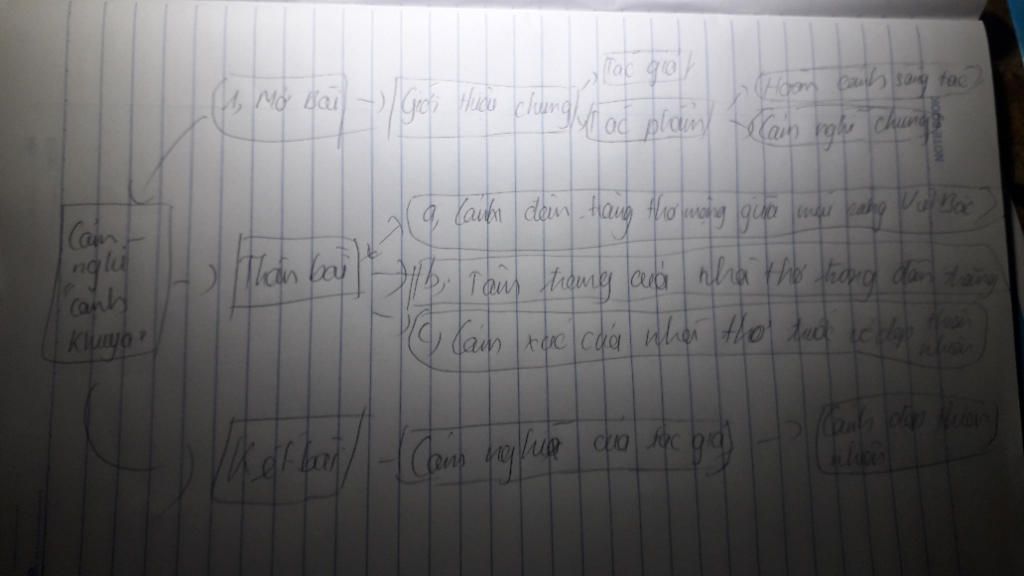 1, Mở Bài
Giới thiệu chung
Tác giả
Tác phẩm
Hoàn cảnh sáng tác
Cảm nghĩ chung
Cảm
nghĩ
"cảnh
khuya"
Thân bài
a, Cảnh đêm trăng thơ mộng giữa núi rừng Việt Bắc
b, Tâm trạng của nhà thơ trong đêm trăng
c, Cảm xúc của nhà thơ trước vẻ đẹp thiên
nhiên
Kết bài
Cảm nghĩ của tác giả
Cảnh đẹp thiên
nhiên